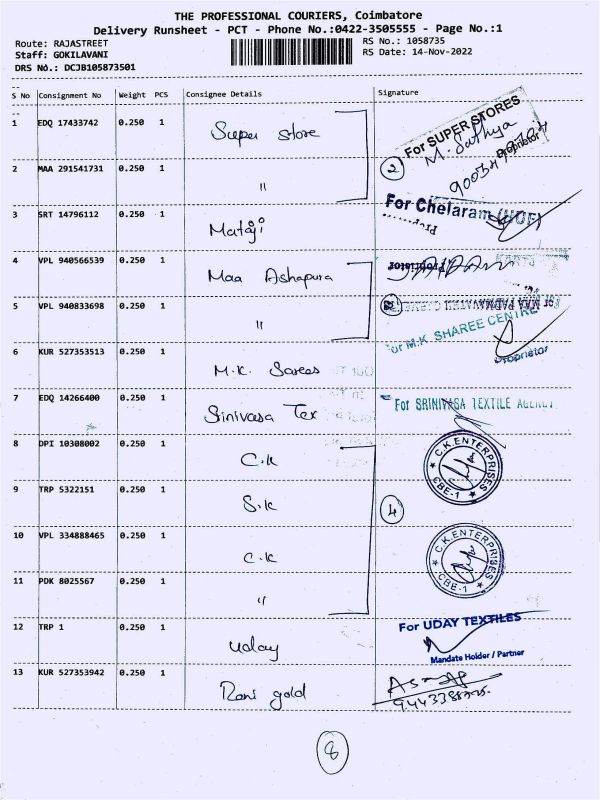 THE PROFESSIONAL COURIERS, Coimbatore
Delivery Runsheet - PCT - Phone No.:0422-3505555 - Page No.:1
Route: RAJASTREET
RS No.: 1058735
Staff: GOKILAVANI
RS Date: 14-Nov-2022
DRS No.: DCJB105873501
S No Consignment No Weight PCS Consignee Details Signature
1 EDQ 17433742 0.250 1 Super store For SUPER STORES
M. Sathya
Proprietor
2 MAA 291541731 0.250 1 " 2
3 SRT 14796112 0.250 1 Mataji For Chelaram (HUF)
Prop.
4 VPL 940566539 0.250 1 Maa Ashapura Proprietor
5 VPL 940833698 0.250 1 " 2
For M.K. SHAREE CENTRE
Proprietor
6 KUR 527353513 0.250 1 M.K. Sarees
7 EDQ 14266400 0.250 1 Srinivasa Tex For SRINIVASA TEXTILE AGENCY
8 DPI 10308002 0.250 1 C.K C.K.ENTERPRISES CBE-1
9 TRP 5322151 0.250 1 S.K 4
10 VPL 334888465 0.250 1 C.K C.K.ENTERPRISES CBE-1
11 PDK 8025567 0.250 1 "
12 TRP 1 0.250 1 uday For UDAY TEXTILES
Mandate Holder / Partner
13 KUR 527353942 0.250 1 Rani gold
8